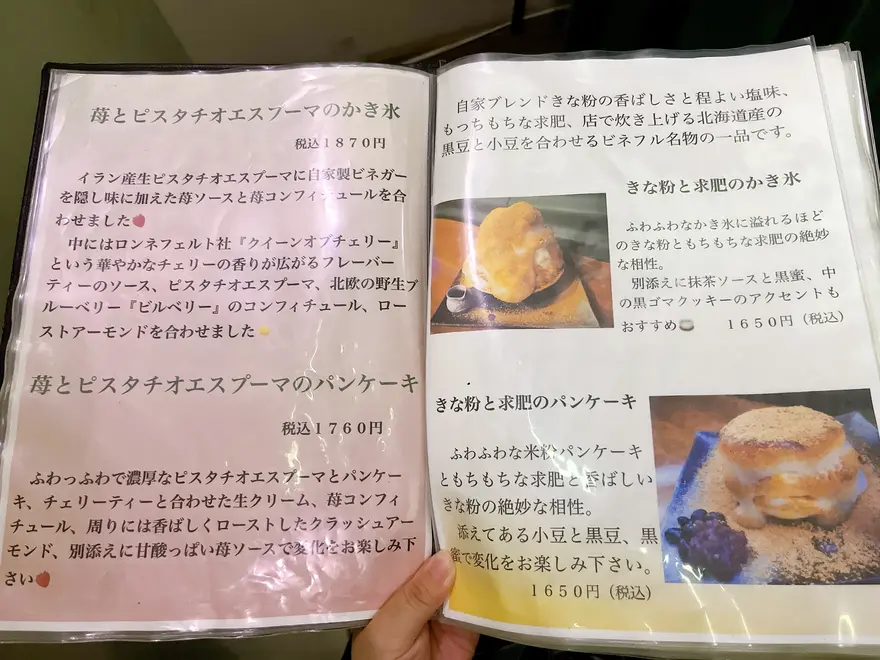 苺とピスタチオエスプーマのかき氷
税込１８７０円
イラン産生ピスタチオエスプーマに自家製ビネガー
を隠し味に加えた苺ソースと苺コンフィチュールを合
わせました🍓
中にはロンネフェルト社『クイーンオブチェリー』
という華やかなチェリーの香りが広がるフレーバー
ティーのソース、ピスタチオエスプーマ、北欧の野生ブ
ルーベリー『ビルベリー』のコンフィチュール、ロー
ストアーモンドを合わせました
苺とピスタチオエスプーマのパンケーキ
税込１７６０円
ふわっふわで濃厚なピスタチオエスプーマとパンケー
キ、チェリーティーと合わせた生クリーム、苺コンフィ
チュール、周りには香ばしくローストしたクラッシュアー
モンド、別添えに甘酸っぱい苺ソースで変化をお楽しみ下
さい🍓
自家ブレンドきな粉の香ばしさと程よい塩味、
もっちもちな求肥、店で炊き上げる北海道産の
黒豆と小豆を合わせるビネフル名物の一品です。
きな粉と求肥のかき氷
ふわふわなかき氷に溢れるほど
のきな粉ともちもちな求肥の絶妙
な相性。
別添えに抹茶ソースと黒蜜、中
の黒ゴマクッキーのアクセントも
おすすめ １６５０円（税込）
きな粉と求肥のパンケーキ
ふわふわな米粉パンケーキ
ともちもちな求肥と香ばしい
きな粉の絶妙な相性。
添えてある小豆と黒豆、黒
蜜で変化をお楽しみ下さい。
１６５０円（税込）